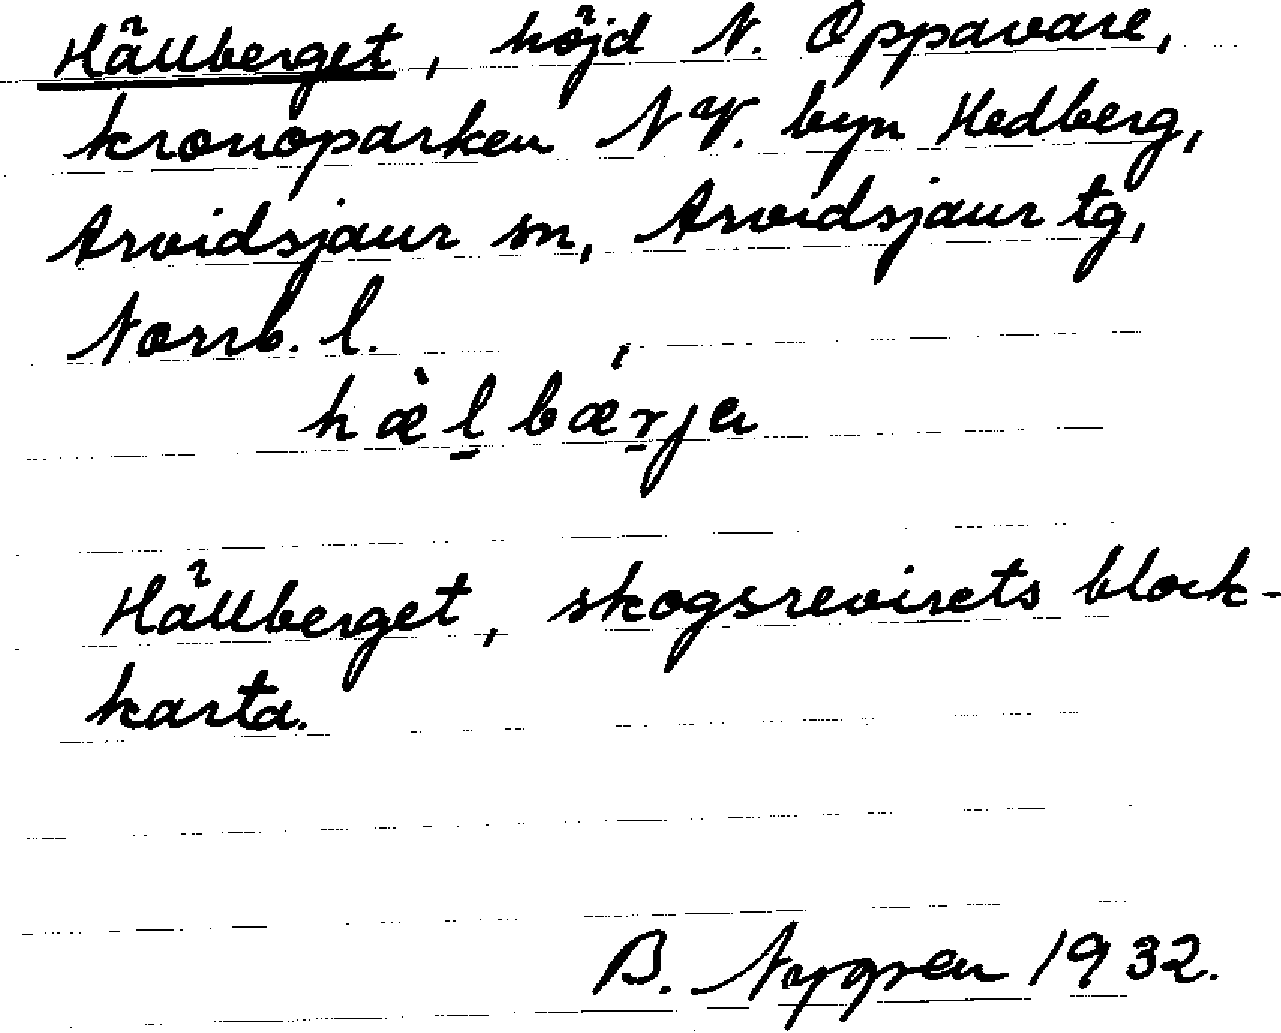 Hällberget, höjd N. Oppavare,
kronoparken NV. byn Hedberg,
Arvidsjaur sn, Arvidsjaur tg,
Norrb. l.
hæ̀l̠bǽr̠ja
Hällberget, skogsrevirets block-
karta.
B. Nygren 1932.